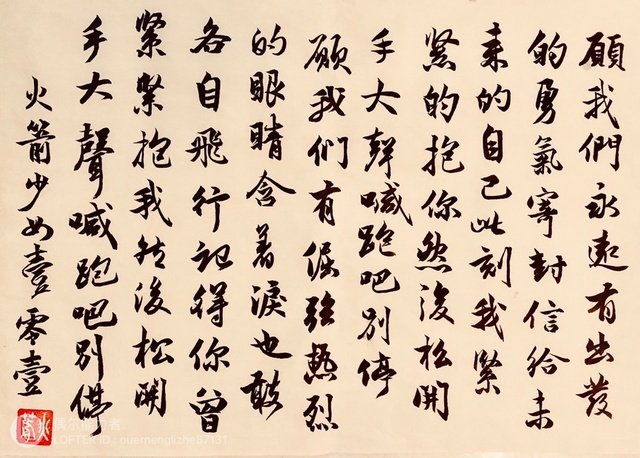 願我們永遠有出發
的勇氣寄封信給未
来的自己此刻我緊
緊的抱你然後松開
手大聲喊跑吧别停
願我们有倔强热烈
的眼睛含着淚也敢
各自飛行記得你曾
緊緊抱我然後松開
手大聲喊跑吧别停
火箭少女壹零壹
LOFTER ID: ouernenglizhe87131